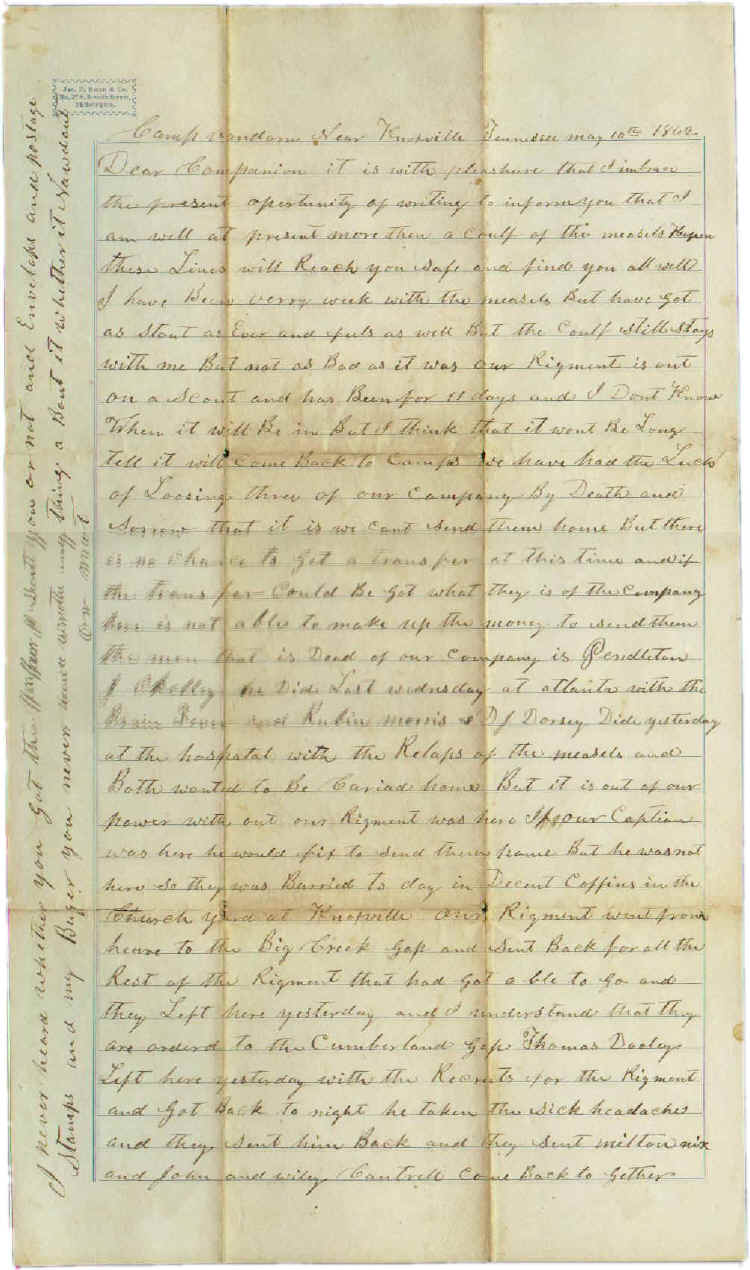 Camp vandorn Near Knoxville Tennessee may 10th 1862
Dear Companion it is with pleashure that I imbrace
the present opertunity of writing to inform you that I
am well at present more then a Coulf of the measels Hopen
these Lines will Reach you safe and find you all well
I have Been verry week with the measels But have got
as Stout as Ever and feels as well But the Coulf still stays
with me But not as Bad as it was our Rigment is out
on a Scout and has Been for 11 days and I Dont Know
When it will Be in But I think that it wont Be Long
tell it will Come Back to Camps we have had the Luck
of Loosing three of our Company By Death and
Sorrow that it is we cant send them home But there
is no chance to Get a transfer at this time and if
the transfer Could Be Got what they is of the Company
here is not able to make up the money to send them
the men that is Dead of our Company is Pendleton
J he Did Last wednsday at atlanta with the
Brain Fever and Rubin morris & D J Dorsey Did yesterday
at the hospatal with the Relaps of the measels and
Both wanted to Be Cariad home But it is out of our
power with out our Rigment was here If our Captian
was here he would fix to send them home But he was not
here So they was Burried to day in Decent Coffins in the
Church yard at Knoxville our Rigment went from
heare to the Big Creek Gap and Sent Back for all the
Rest of the Rigment that had got able to Go and
they Left here yesterday and I understand that they
are orderd to the Cumberland Gap Thomas Dooley
Left here yesterday with the Recruts for the Rigment
and Got Back to night he taken the sick headaches
and they sent him Back and they sent milton nix
and John and wiley Cantrell Come Back to Gether
I never heard whether you Got the or not and Envelops and postage
Stamps and my Buger you never wrote any thing a Bout it whether it